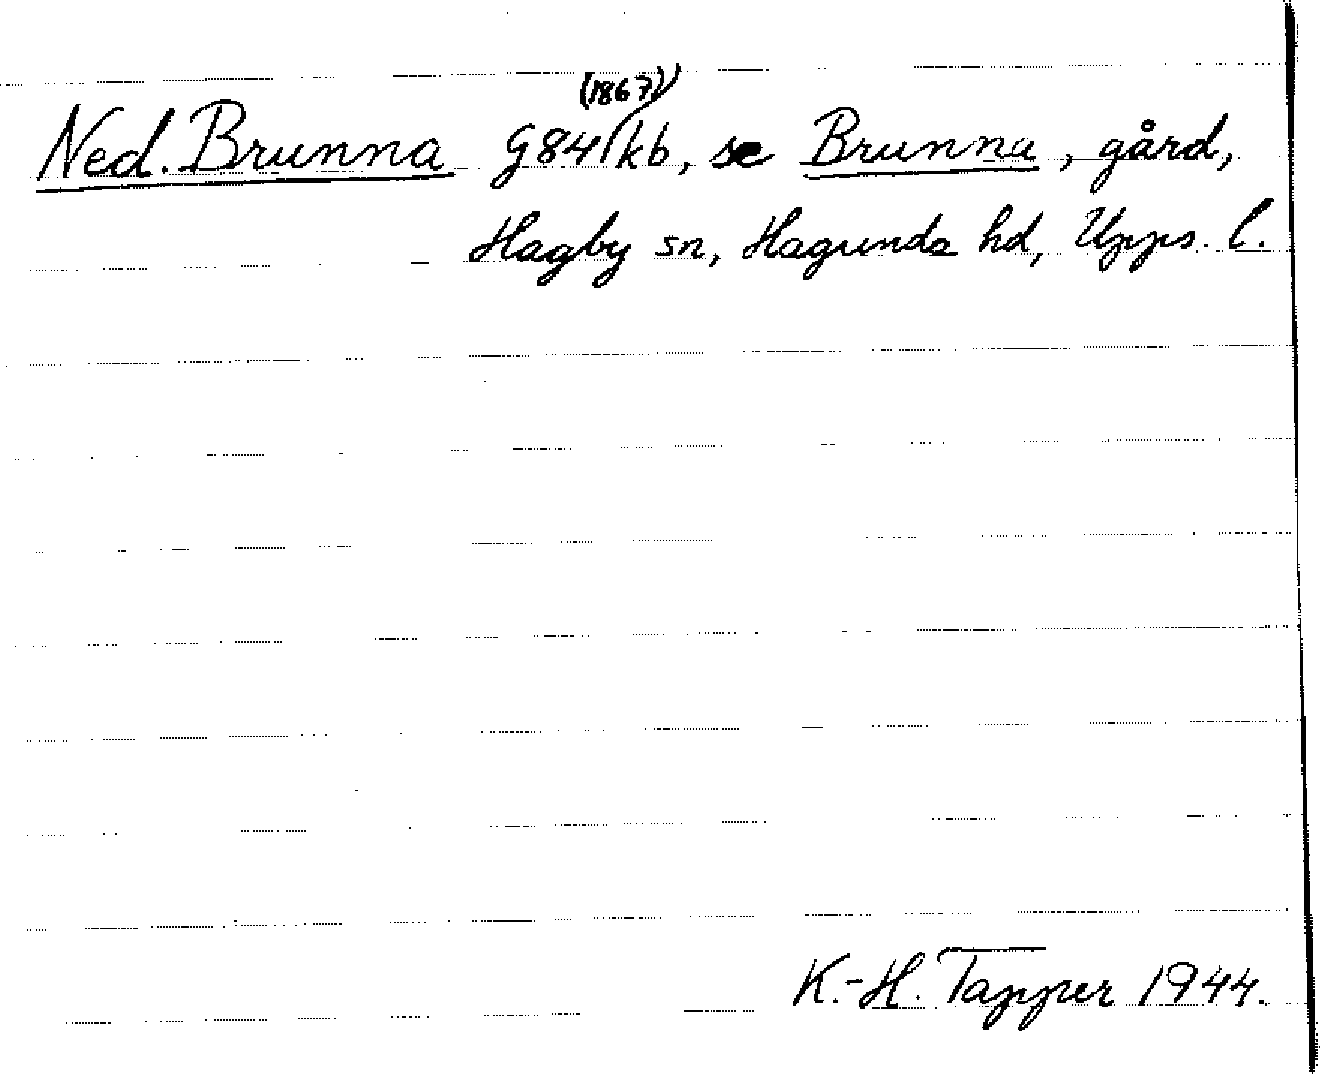 Ned. Brunna G84 (1867) kb, se Brunna, gård,
Hagby sn, Hagunda hd, Upps. l.
K.-H. Tapper 1944.